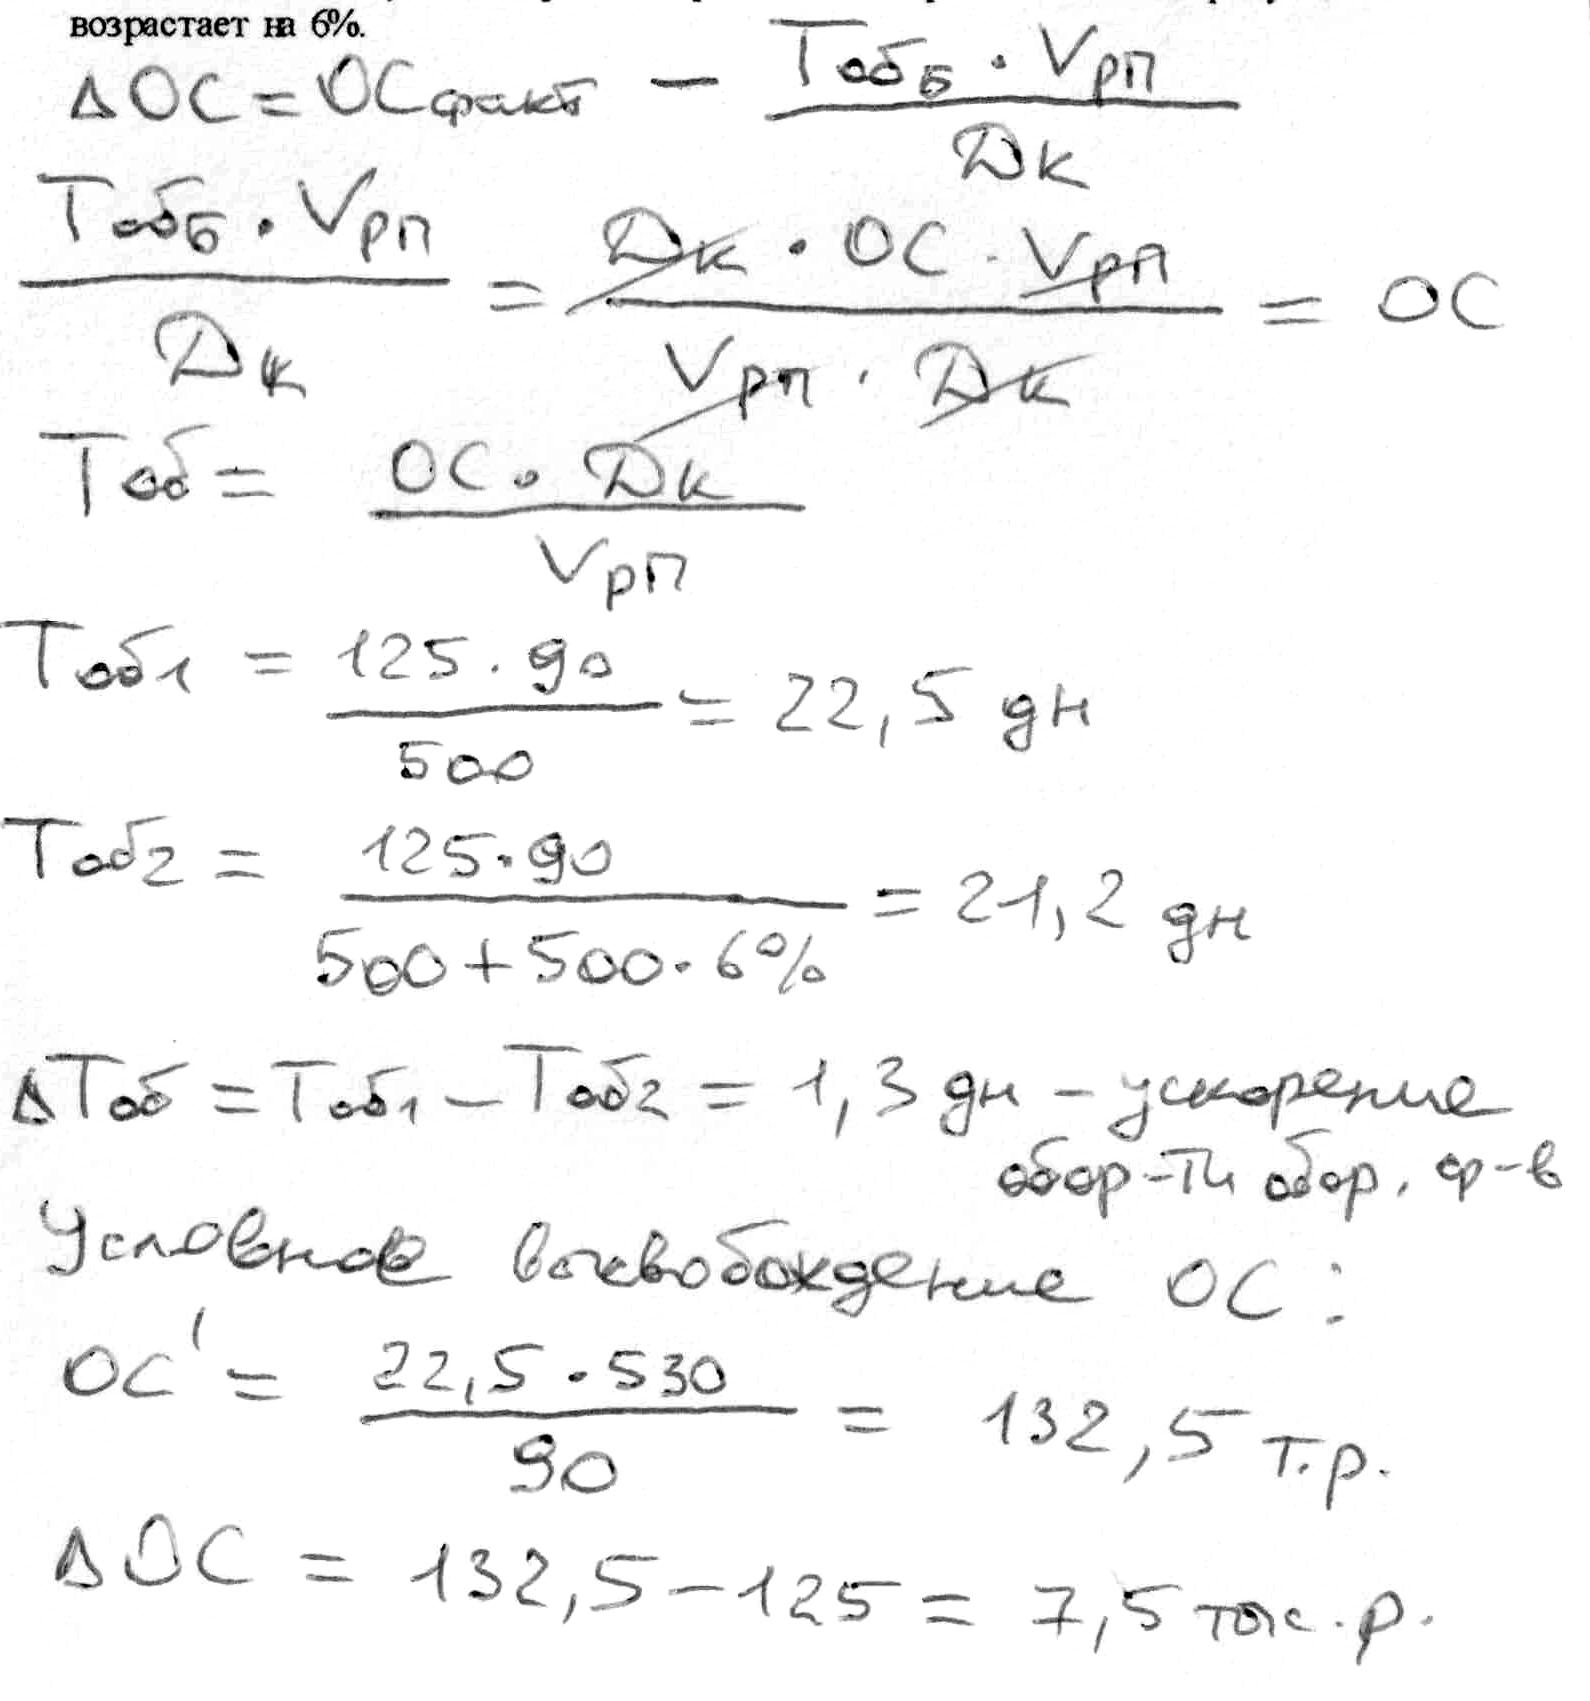 возрастает на 6%.
ΔОС = ОСфакт − Тобб · Vрп / Дк
Тобб · Vрп / Дк = Дк · ОС · Vрп / Vрп · Дк = ОС
Тоб = ОС · Дк / Vрп
Тоб1 = 125 · 90 / 500 = 22,5 дн
Тоб2 = 125 · 90 / 500 + 500 · 6% = 21,2 дн
ΔТоб = Тоб1 − Тоб2 = 1,3 дн − ускорение
обор-ти обор. ср-в
Условное высвобождение ОС:
ОС' = 22,5 · 530 / 90 = 132,5 т.р.
ΔОС = 132,5 − 125 = 7,5 тыс. р.